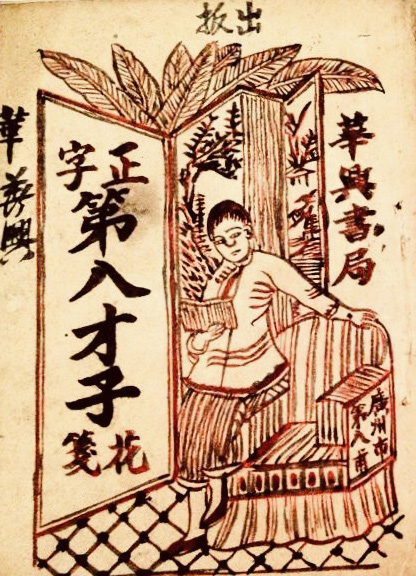 出扳
華興書局
正字
第八才子
花箋
廣州市
第八甫
華
興